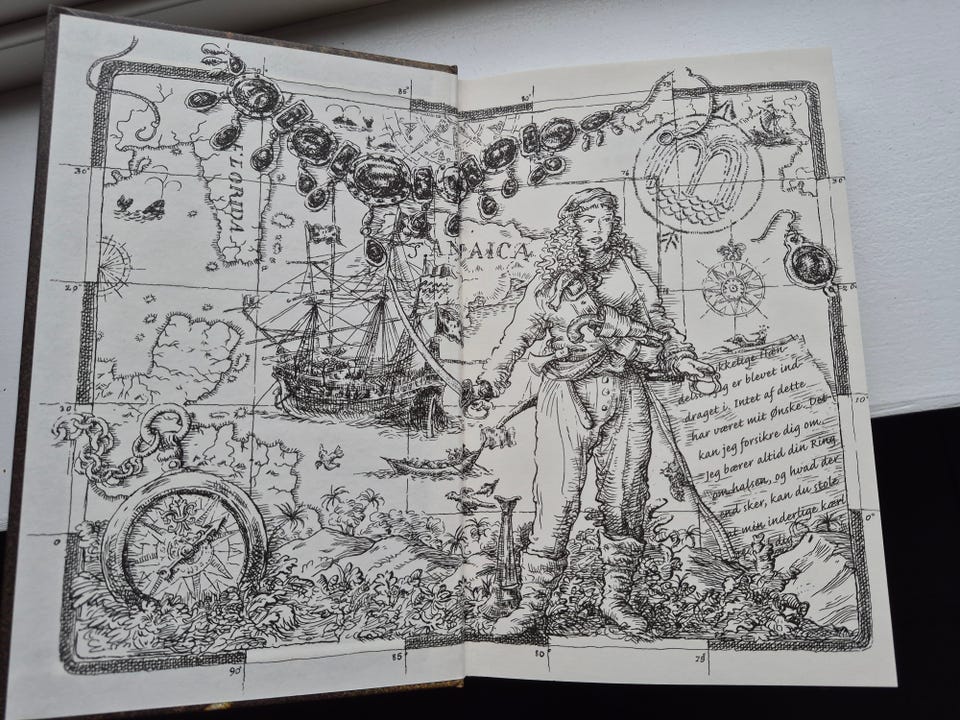 85°
80°
75
FLORIDA
30
JAMAICA
20
kkelige Hæn
delse jeg er blevet ind
draget i. Intet af dette
har været mit Ønske. Det
kan jeg forsikre dig om.
Jeg bærer altid din Ring
om halsen, og hvad der
end sker, kan du stole
min inderlige kærl
dig
10
10°
0
0°
90°
85
80
75